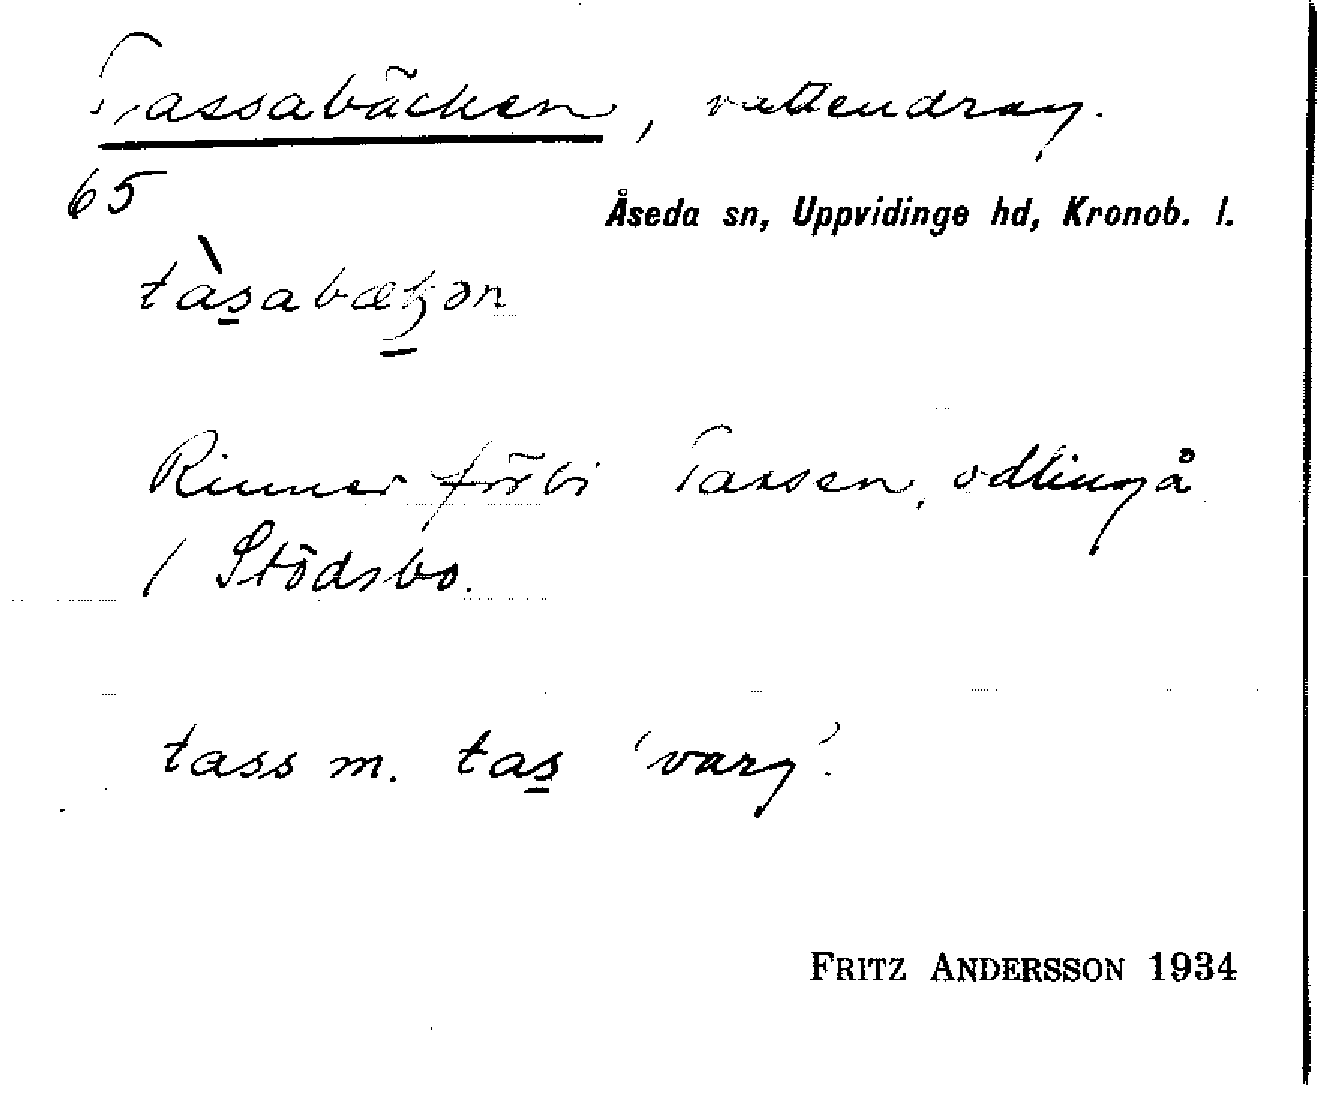 Tassabäcken, vattendrag.
65
Åseda sn, Uppvidinge hd, Kronob. l.
tàs̲abæk̲ən
Rinner förbi Tassen, odling å
/ Stödsbo.
tass m. tas̲ 'varg'.
FRITZ ANDERSSON 1934